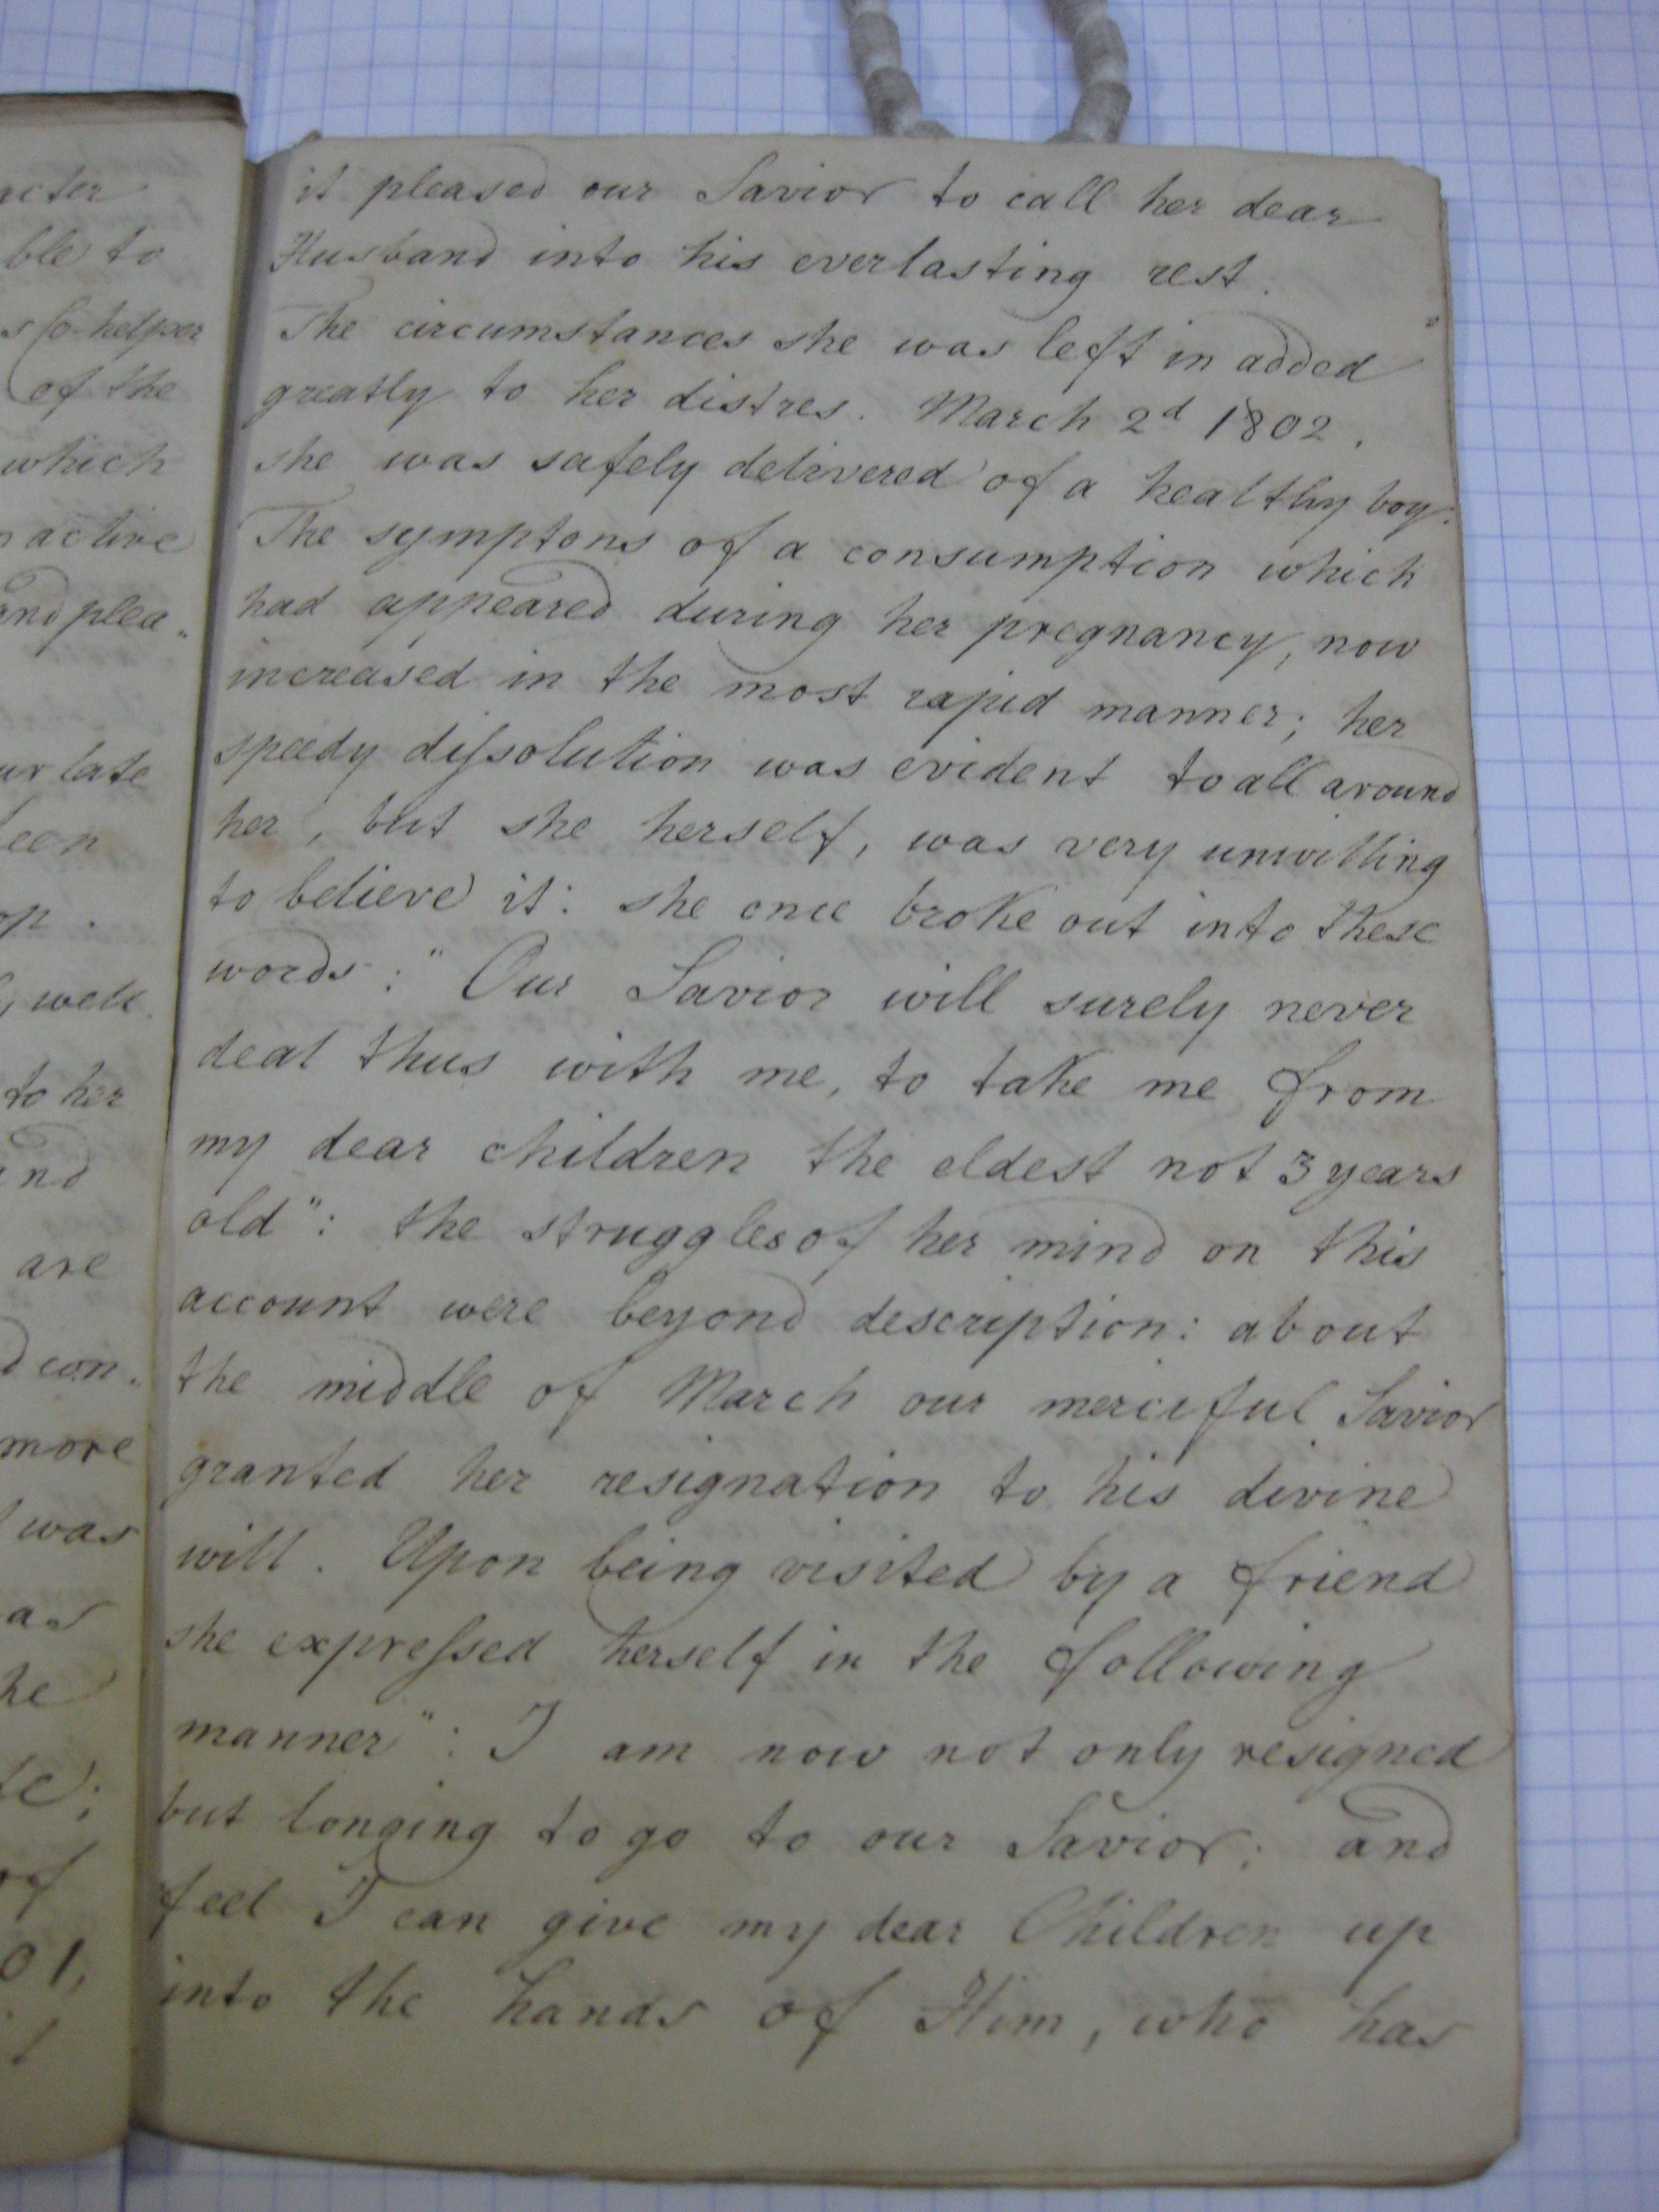 acter
ble to
s Co-helper
of the
which
active
and plea„
ur late
een
op.
well
to her
and
are
d con„
more
was
as
he
of
01,
it pleased our Savior to call her dear
Husband into his everlasting rest.
The circumstances she was left in added
greatly to her distres. March 2d 1802.
she was safely delivered of a healthy boy.
The symptons of a consumption which
had appeared during her pregnancy, now
increased in the most rapid manner; her
speedy dißolution was evident to all around
her, but she herself, was very unwilling
to believe it: she once broke out into these
words: "Our Savior will surely never
deal thus with me, to take me from
my dear children the eldest not 3 years
old": the struggles of her mind on this
account were beyond description: about
the middle of March our merciful Savior
granted her resignation to his divine
will. Upon being visited by a friend
she expreſsed herself in the following
manner": I am now not only resigned
but longing to go to our Savior; and
feel I can give my dear Children up
into the hands of Him, who has